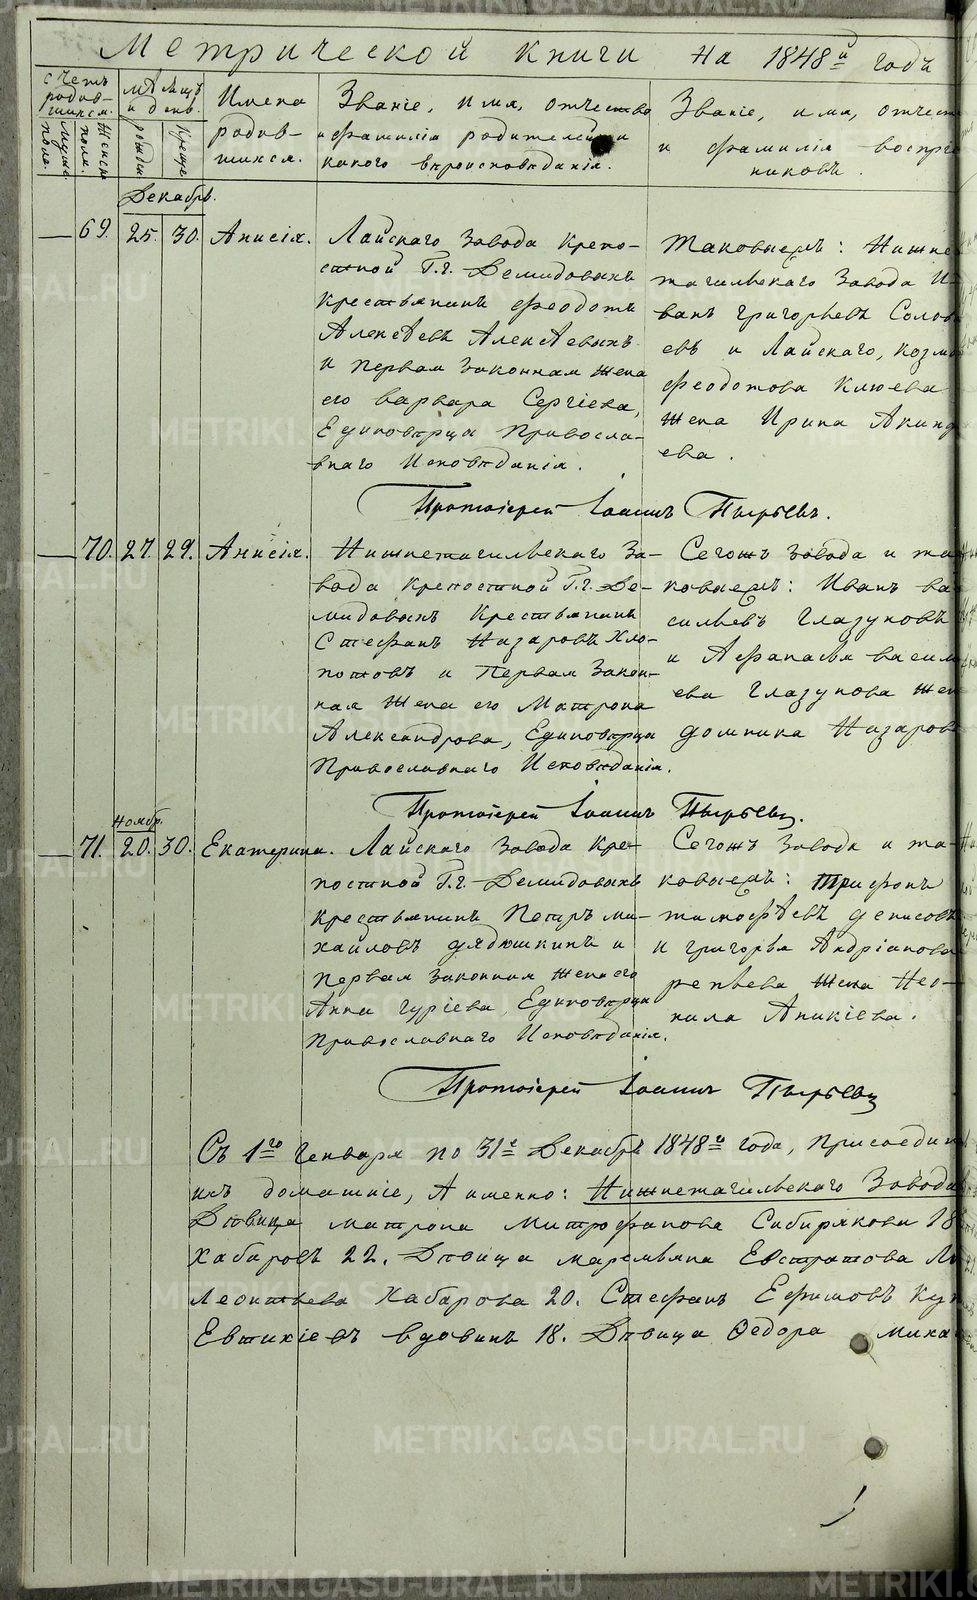 Метрической книги на 1848й годъ
Счетъ родив-шихся.
Мужеска пола.
Женска пола.
Мѣсяцъ и день.
рожден.
Крещен.
Имена родив-шихся.
Званіе, имя, отчество
и фамилія родителей и
какого вѣроисповѣданія.
Званіе, имя, отчест
и фамилія воспріе
никовъ.
Декабрь.
69. 25. 30. Анисія.
Лайскаго Завода Крепо-
стной Г.г. Демидовыхъ
Крестьянинъ Феодотъ
Алексѣевъ Алексѣевыхъ
и первая законная жена
его Варвара Сергіева,
Единовѣрцы Правосла-
внаго Исповѣданія.
Таковыежъ: Нижне
тагильскаго Завода И-
ванъ Григорьевъ Солов
евъ и Лайскаго, Козмы
Феодотова Клюева
жена Ирина Акинф
ева.
Протоіерей Іоаннъ Пырьевъ.
70. 27. 29. Анисія.
Нижнетагильскаго За-
вода Крепостной Г.г. Де-
мидовыхъ Крестьянинъ
Стефанъ Назаровъ Хло-
потовъ и Первая Закон-
ная Жена его Матрона
Александрова, Единовѣрцы
Православнаго Исповѣданія.
Сегожъ Завода и та
ковыежъ: Иванъ Ва
сильевъ Глазуновъ
и Афанасья Василь
ева Глазунова жен
Домника Назаров
Протоіерей Іоаннъ Пырьевъ.
Ноябр.
71. 20. 30. Екатерина.
Лайскаго Завода Кре-
постной Г.г. Демидовыхъ
крестьянинъ Петръ Ми-
хайловъ Дядюшкинъ и
Первая Законная Жена его
Анна Гуріева, Единовѣрцы
Православнаго Исповѣданія.
Сегожъ Завода и та-
ковыежъ: Трифонъ
Тимофѣевъ Денисовъ
и Григорья Андріанова
репьева Жена Нео-
нила Аникіева.
Протоіерей Іоаннъ Пырьевъ
Съ 1го Генваря по 31е Декабря 1848го года, Присоедин
ихъ домашніе, А именно: Нижнетагильскаго Завода
Дѣвица Матрона Митрофанова Сибирякова 18
Хабаровъ 22. Дѣвица Маремьяна Евстратова
Леонтьева Хабарова 20. Стефанъ Ефимовъ
Евтихіевъ Вдовинъ 18. Дѣвица Федора Миха
METRIKI.GASO-URAL.RU